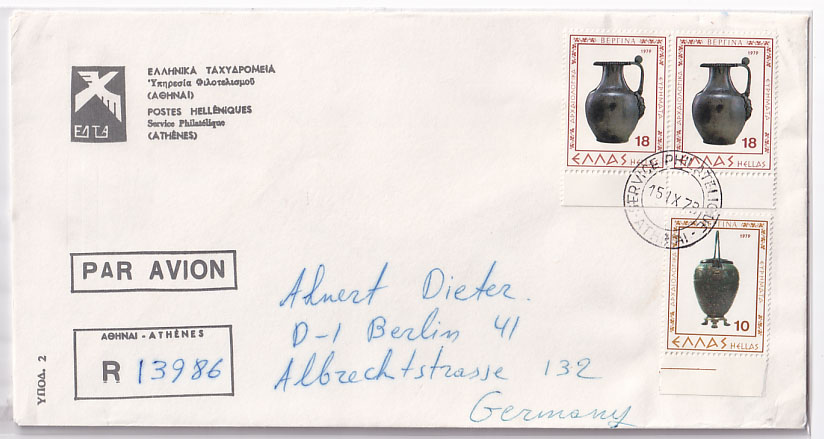 ΕΛΤΑ
ΕΛΛΗΝΙΚΑ ΤΑΧΥΔΡΟΜΕΙΑ
Ὑπηρεσία Φιλοτελισμοῦ
(ΑΘΗΝΑΙ)
POSTES HELLÉNIQUES
Service Philatélique
(ATHÈNES)
ΒΕΡΓΙΝΑ
1979
ΑΡΧΑΙΟΛΟΓΙΚΑ
ΕΥΡΗΜΑΤΑ
18
ΕΛΛΑΣ HELLAS
ΒΕΡΓΙΝΑ
1979
ΑΡΧΑΙΟΛΟΓΙΚΑ
ΕΥΡΗΜΑΤΑ
18
ΕΛΛΑΣ HELLAS
SERVICE PHILATELIQUE
ΒΕΡΓΙΝΑ
1979
ΑΡΧΑΙΟΛΟΓΙΚΑ
ΕΥΡΗΜΑΤΑ
10
ΕΛΛΑΣ HELLAS
PAR AVION
ΑΘΗΝΑΙ - ATHÈNES
R 13986
ΥΠΟΔ. 2
Ahnert Dieter.
D-1 Berlin 41
Albrechtstrasse 132
Germany